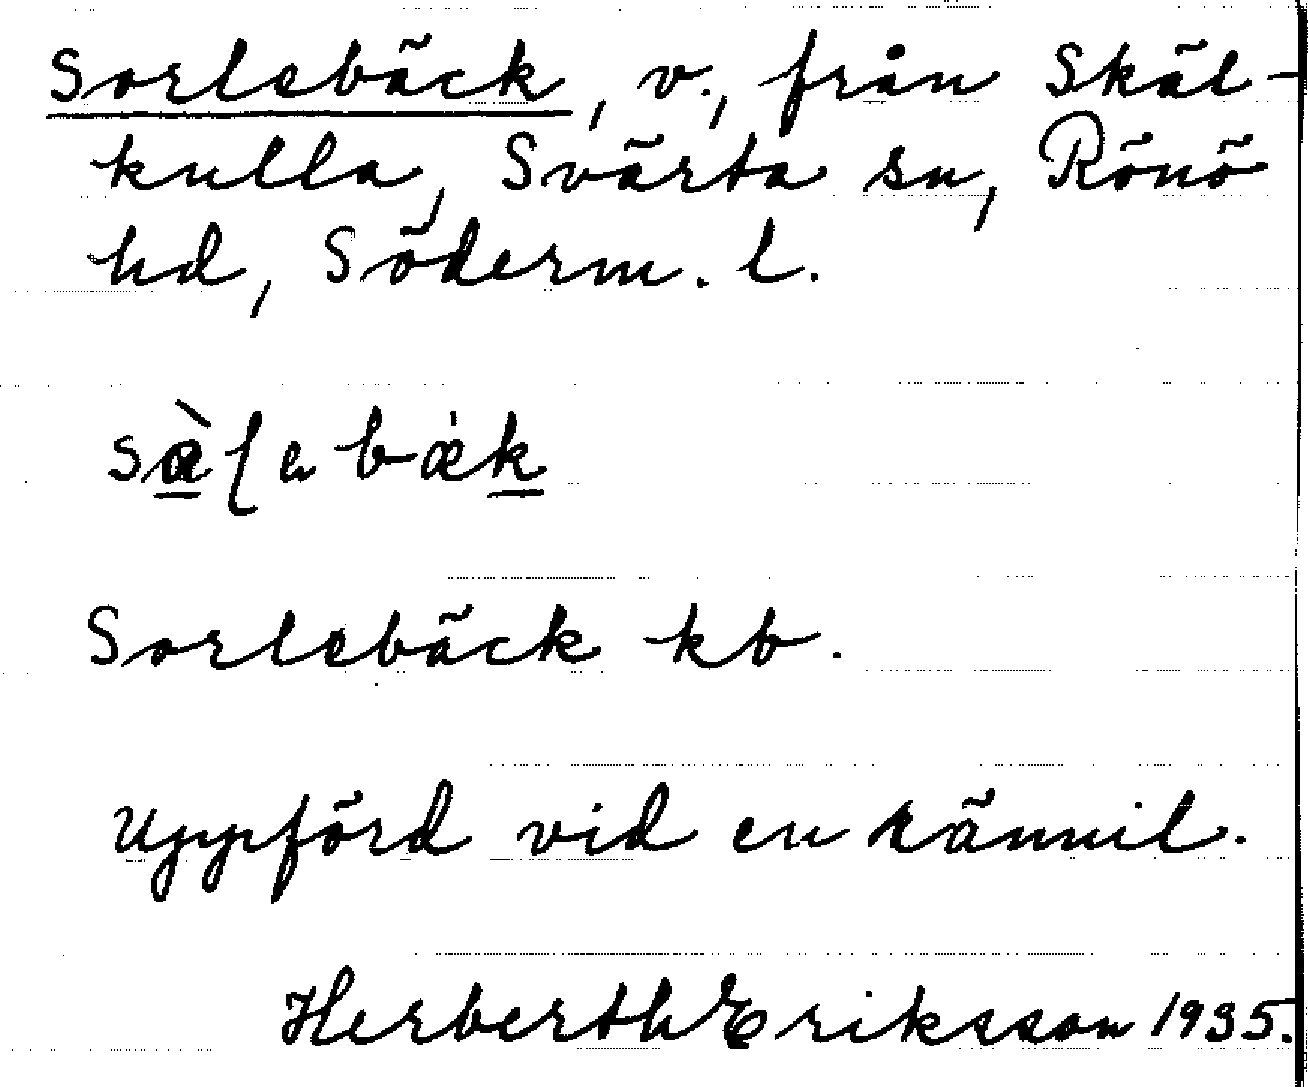 Sorlebäck, v., från Skäl-
kulla, Svärta sn, Rönö
hd, Söderm. l.
Sorlebäck kb.
Uppförd vid en rännil.
Herberth Eriksson 1935.